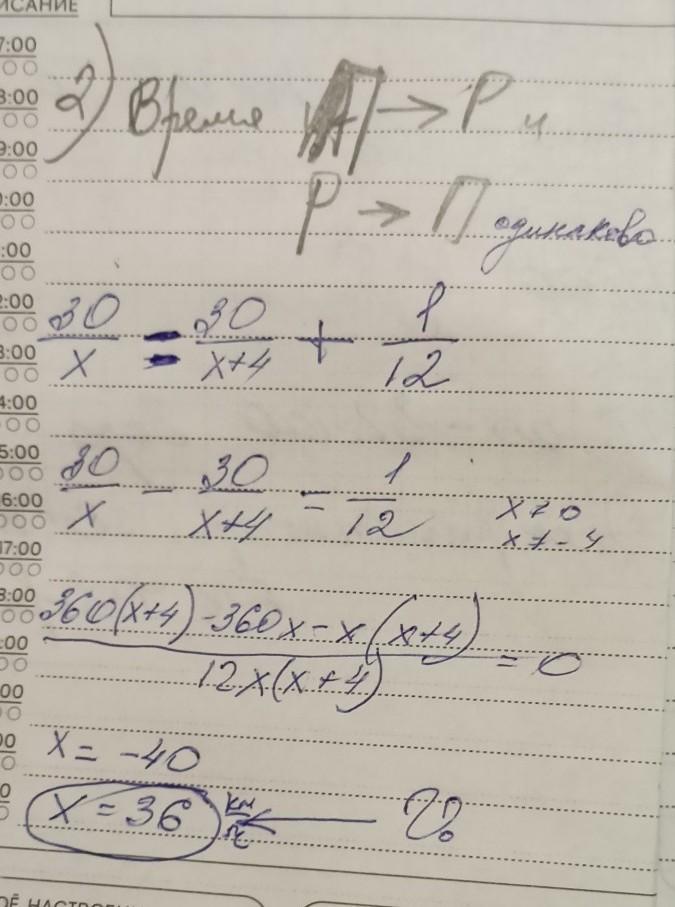 ИСАНИЕ
7:00
8:00
9:00
:00
:00
2:00
3:00
4:00
5:00
6:00
17:00
8:00
:00
:00
00
0
2) Время П → Р и
Р → П одинаково
30/x = 30/(x+4) + 1/12
30/x - 30/(x+4) = 1/12 x ≠ 0
x ≠ -4
(360(x+4) - 360x - x(x+4))/(12x(x+4)) = 0
x = -40
x = 36 км/ч ←
ОЁ НАСТРОЕН